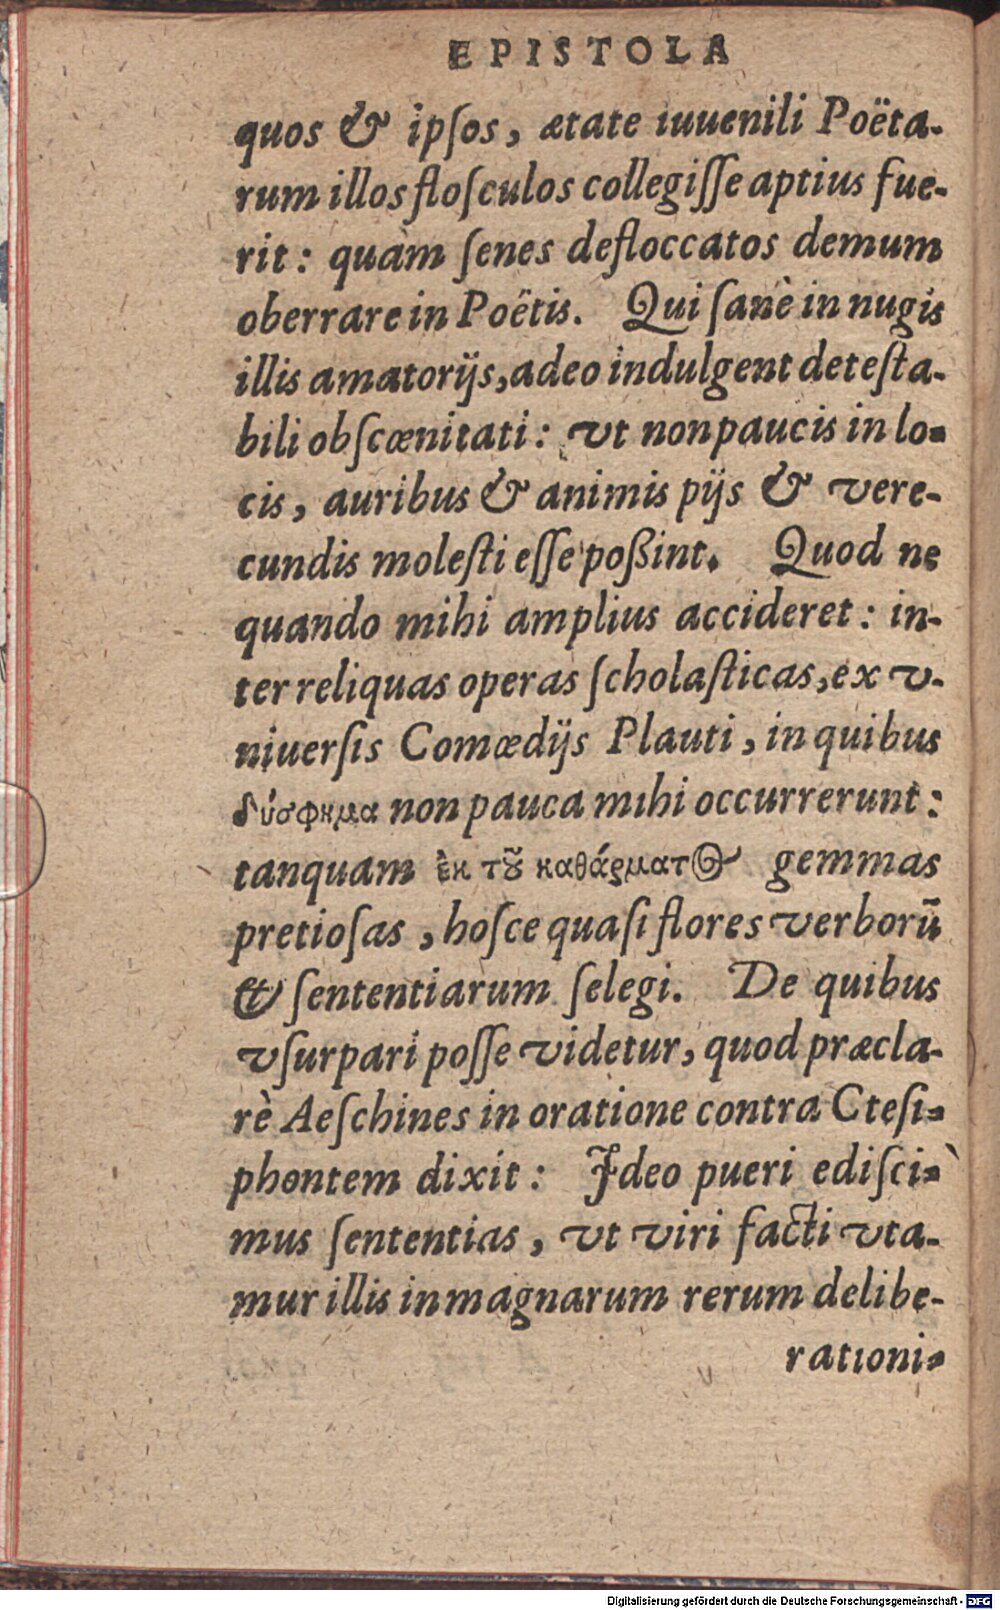 EPISTOLA
quos & ipſos, ætate iuuenili Poëta-
rum illos floſculos collegiſſe aptius fue-
rit: quàm ſenes defloccatos demum
oberrare in Poëtis. Qui ſanè in nugis
illis amatorijs, adeo indulgent deteſta-
bili obſcœnitati: vt non paucis in lo-
cis, auribus & animis pijs & vere-
cundis moleſti eſſe poßint. Quod ne
quando mihi amplius accideret: in-
ter reliquas operas ſcholaſticas, ex v-
niuerſis Comœdijs Plauti, in quibus
δύσφημα non pauca mihi occurrerunt:
tanquam ἐκ τȣ͂ καθάρματ⊙ gemmas
pretioſas, hoſce quaſi flores verborũ
& ſententiarum ſelegi. De quibus
vſurpari poſſe videtur, quod præcla-
rè Aeſchines in oratione contra Cteſi-
phontem dixit: Ideo pueri ediſci-
mus ſententias, vt viri facti vta-
mur illis in magnarum rerum delibe-
rationi-
Digitalisierung gefördert durch die Deutsche Forschungsgemeinschaft - DFG